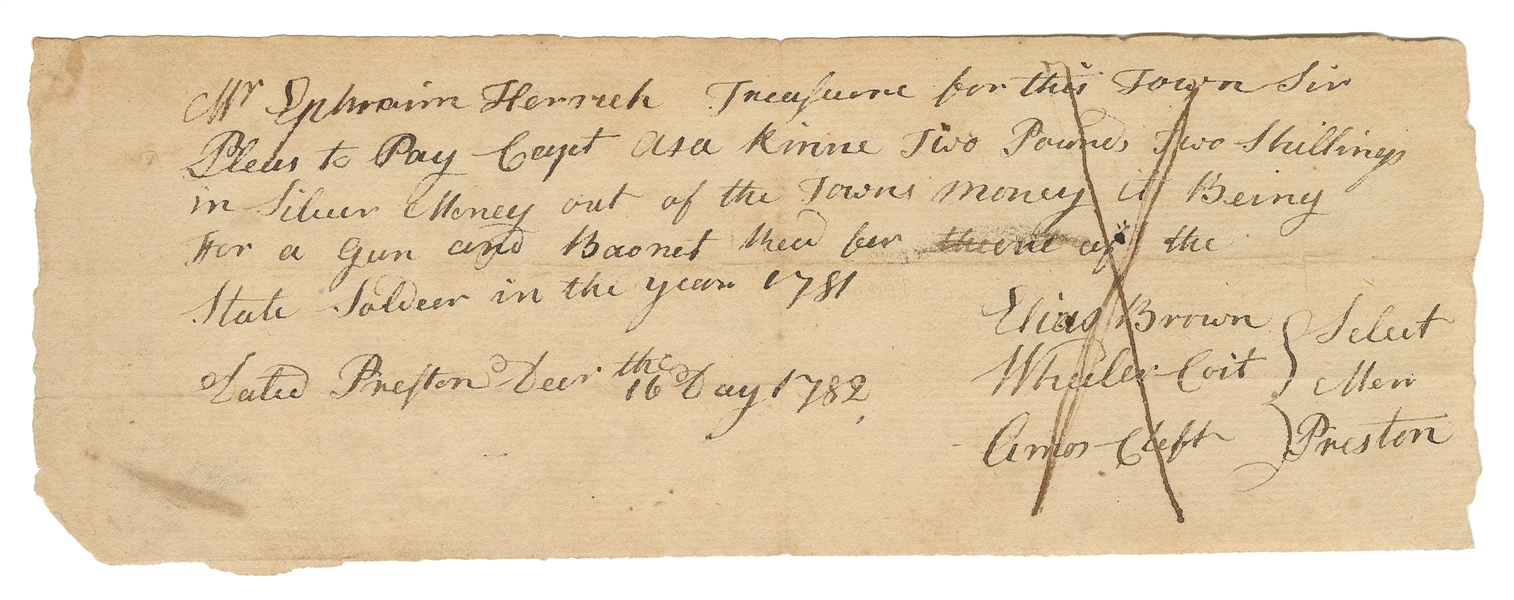 Mr Ephraim Herrick Treasuere for this Town Sir
Pleas to Pay Capt Asa Kinne Two Pounds Two Shillings
in Silver Money out of the Towns money it Being
For a Gun and Baonet for the
State Soldeer in the year 1781
Elias Brown
Wheeler Coit
Amos Cleft
Select
Men
Preston
Dated Preston Decr the 16 Day 1782